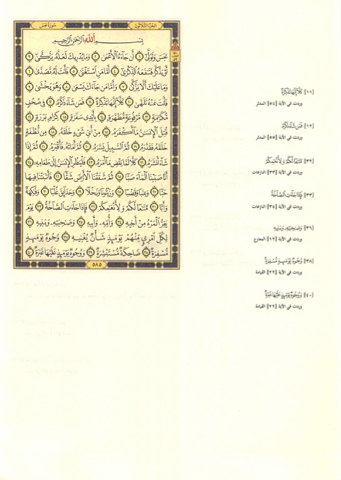 سُورَةُ عَبَسَ
الجُزْءُ الثَّلَاثُونَ
بِسْمِ اللَّهِ الرَّحْمَٰنِ الرَّحِيمِ
عَبَسَ وَتَوَلَّىٰ ١ أَن جَاءَهُ الْأَعْمَىٰ ٢ وَمَا يُدْرِيكَ لَعَلَّهُ يَزَّكَّىٰ ٣
أَوْ يَذَّكَّرُ فَتَنفَعَهُ الذِّكْرَىٰ ٤ أَمَّا مَنِ اسْتَغْنَىٰ ٥ فَأَنتَ لَهُ تَصَدَّىٰ ٦
وَمَا عَلَيْكَ أَلَّا يَزَّكَّىٰ ٧ وَأَمَّا مَن جَاءَكَ يَسْعَىٰ ٨ وَهُوَ يَخْشَىٰ ٩
فَأَنتَ عَنْهُ تَلَهَّىٰ ١٠ كَلَّا إِنَّهَا تَذْكِرَةٌ ١١ فَمَن شَاءَ ذَكَرَهُ ١٢ فِي صُحُفٍ
مُّكَرَّمَةٍ ١٣ مَّرْفُوعَةٍ مُّطَهَّرَةٍ ١٤ بِأَيْدِي سَفَرَةٍ ١٥ كِرَامٍ بَرَرَةٍ ١٦
قُتِلَ الْإِنسَٰنُ مَا أَكْفَرَهُ ١٧ مِنْ أَيِّ شَيْءٍ خَلَقَهُ ١٨ مِن نُّطْفَةٍ
خَلَقَهُ فَقَدَّرَهُ ١٩ ثُمَّ السَّبِيلَ يَسَّرَهُ ٢٠ ثُمَّ أَمَاتَهُ فَأَقْبَرَهُ ٢١ ثُمَّ إِذَا
شَاءَ أَنشَرَهُ ٢٢ كَلَّا لَمَّا يَقْضِ مَا أَمَرَهُ ٢٣ فَلْيَنظُرِ الْإِنسَٰنُ إِلَىٰ طَعَامِهِ ٢٤
أَنَّا صَبَبْنَا الْمَاءَ صَبًّا ٢٥ ثُمَّ شَقَقْنَا الْأَرْضَ شَقًّا ٢٦ فَأَنبَتْنَا فِيهَا
حَبًّا ٢٧ وَعِنَبًا وَقَضْبًا ٢٨ وَزَيْتُونًا وَنَخْلًا ٢٩ وَحَدَائِقَ غُلْبًا ٣٠ وَفَٰكِهَةً
وَأَبًّا ٣١ مَّتَٰعًا لَّكُمْ وَلِأَنْعَٰمِكُمْ ٣٢ فَإِذَا جَاءَتِ الصَّاخَّةُ ٣٣ يَوْمَ
يَفِرُّ الْمَرْءُ مِنْ أَخِيهِ ٣٤ وَأُمِّهِ وَأَبِيهِ ٣٥ وَصَٰحِبَتِهِ وَبَنِيهِ ٣٦
لِكُلِّ امْرِئٍ مِّنْهُمْ يَوْمَئِذٍ شَأْنٌ يُغْنِيهِ ٣٧ وُجُوهٌ يَوْمَئِذٍ
مُّسْفِرَةٌ ٣٨ ضَاحِكَةٌ مُّسْتَبْشِرَةٌ ٣٩ وَوُجُوهٌ يَوْمَئِذٍ عَلَيْهَا غَبَرَةٌ ٤٠
٥٨٥
[١١] كَلَّا إِنَّهَا تَذْكِرَةٌ
وردت في الآية [٥٤] المدثر
[١٢] فَمَن شَاءَ ذَكَرَهُ
وردت في الآية [٥٥] المدثر
[٣٢] مَتَٰعًا لَّكُمْ وَلِأَنْعَٰمِكُمْ
وردت في الآية [٣٣] النازعات
[٣٣] فَإِذَا جَاءَتِ الصَّاخَّةُ
وردت في الآية [٣٤] النازعات
[٣٦] وَصَٰحِبَتِهِ وَبَنِيهِ
وردت في الآية [١٢] المعارج
[٣٨] وُجُوهٌ يَوْمَئِذٍ مُّسْفِرَةٌ
وردت في الآية [٢٢] القيامة
[٤٠] وَوُجُوهٌ يَوْمَئِذٍ عَلَيْهَا غَبَرَةٌ
وردت في الآية [٢٤] القيامة